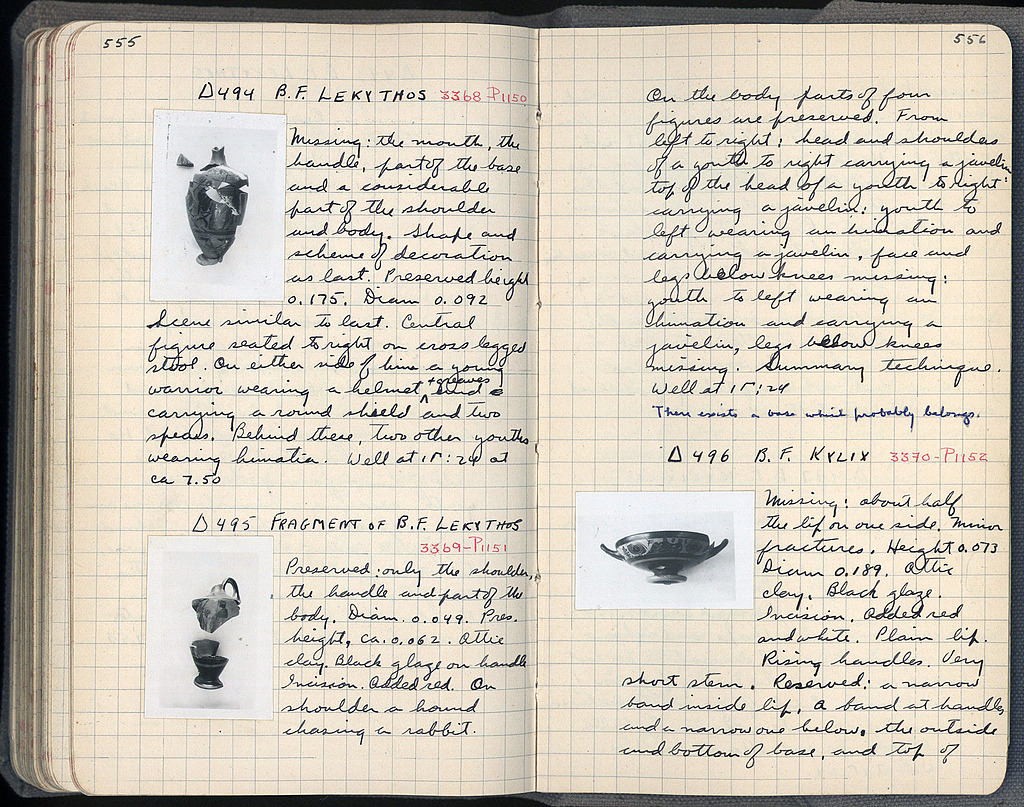 555
Δ494 B.F. LEKYTHOS 3368-P1150
Missing: the mouth, the
handle, part of the base
and a considerable
part of the shoulder
and body. Shape and
scheme of decoration
as last. Preserved height
0.175. Diam 0.092
Scene similar to last. Central
figure seated to right on cross legged
stool. On either side of him a young
warrior wearing a helmet + greaves and
carrying a round shield and two
spears. Behind these, two other youths
wearing himatia. Well at 15:24 at
ca 7.50
Δ495 FRAGMENT OF B.F. LEKYTHOS
3369-P1151
Preserved: only the shoulder,
the handle and part of the
body. Diam. 0.049. Pres.
height, ca. 0.062. Attic
clay. Black glaze on handle
Incision. Added red. On
shoulder a hound
chasing a rabbit.
556
On the body parts of four
figures are preserved. From
left to right: head and shoulders
of a youth to right carrying a javelin
top of the head of a youth to right
carrying a javelin: youth to
left wearing an himation and
carrying a javelin, face and
legs below knees missing:
youth to left wearing an
himation and carrying a
javelin, legs below knees
missing. Summary technique.
Well at 15:24
There exists a base which probably belongs.
Δ496 B.F. KYLIX 3370-P1152
Missing: about half
the lip on one side. Minor
fractures. Height 0.073
Diam 0.189. Attic
clay. Black glaze.
Incision. Added red
and white. Plain lip.
Rising handles. Very
short stem. Reserved: a narrow
band inside lip. A band at handles
and a narrow one below. the outside
and bottom of base, and top of